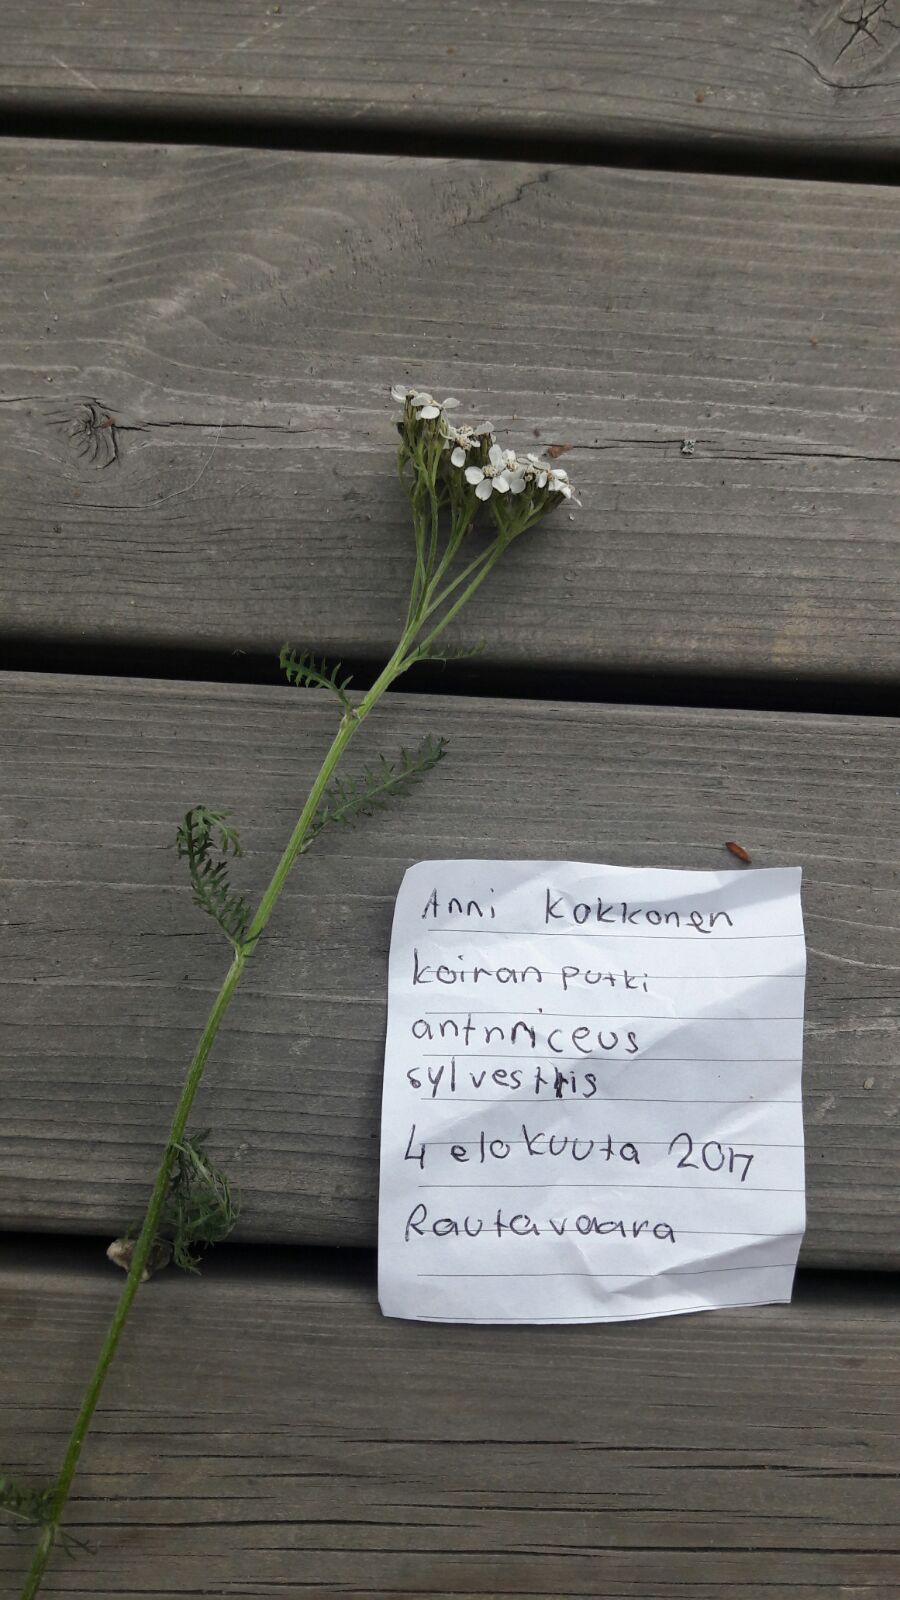 Anni Kokkonen
koiran putki
antnriceus
sylvestris
4 elokuuta 2017
Rautavaara